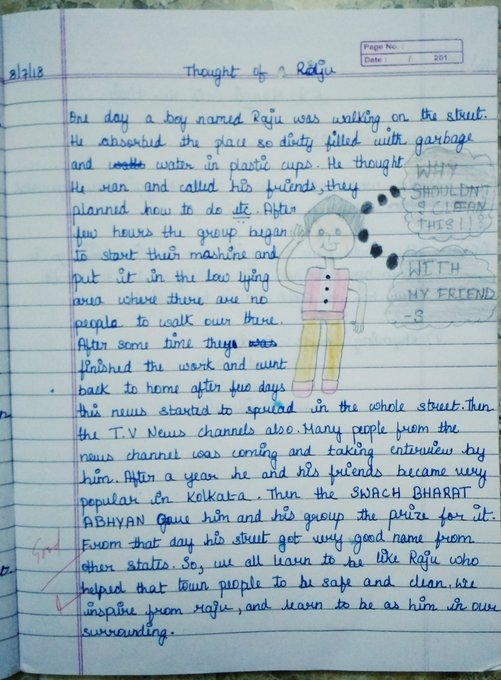 Page No. :
Date : / / 201
8/7/18
Thought of a Raju
One day a boy named Raju was walking on the street.
He absorbed the place so dirty filled with garbage
and water in plastic cups. He thought
He ran and called his friends, they
planned how to do etc. After
few hours the group began
to start their mashine and
put it in the low lying
area where there are no
people to walk over there.
After some time they was
finished the work and went
back to home after few days
this news started to spread in the whole street. Then
the T.V News channels also. Many people from the
news channel was coming and taking interview by
him. After a year he and his friends became very
popular in Kolkata. Then the SWACH BHARAT
ABHYAN Gave him and his group the prize for it.
From that day his street got very good name from
other states. So, we all learn to be like Raju who
helped that town people to be safe and clean. We
inspire from raju, and learn to be as him in our
surrounding.
WHY
SHOULDN'T
I CLEAN
THIS !!??
WITH
MY FRIEND
-S
Good